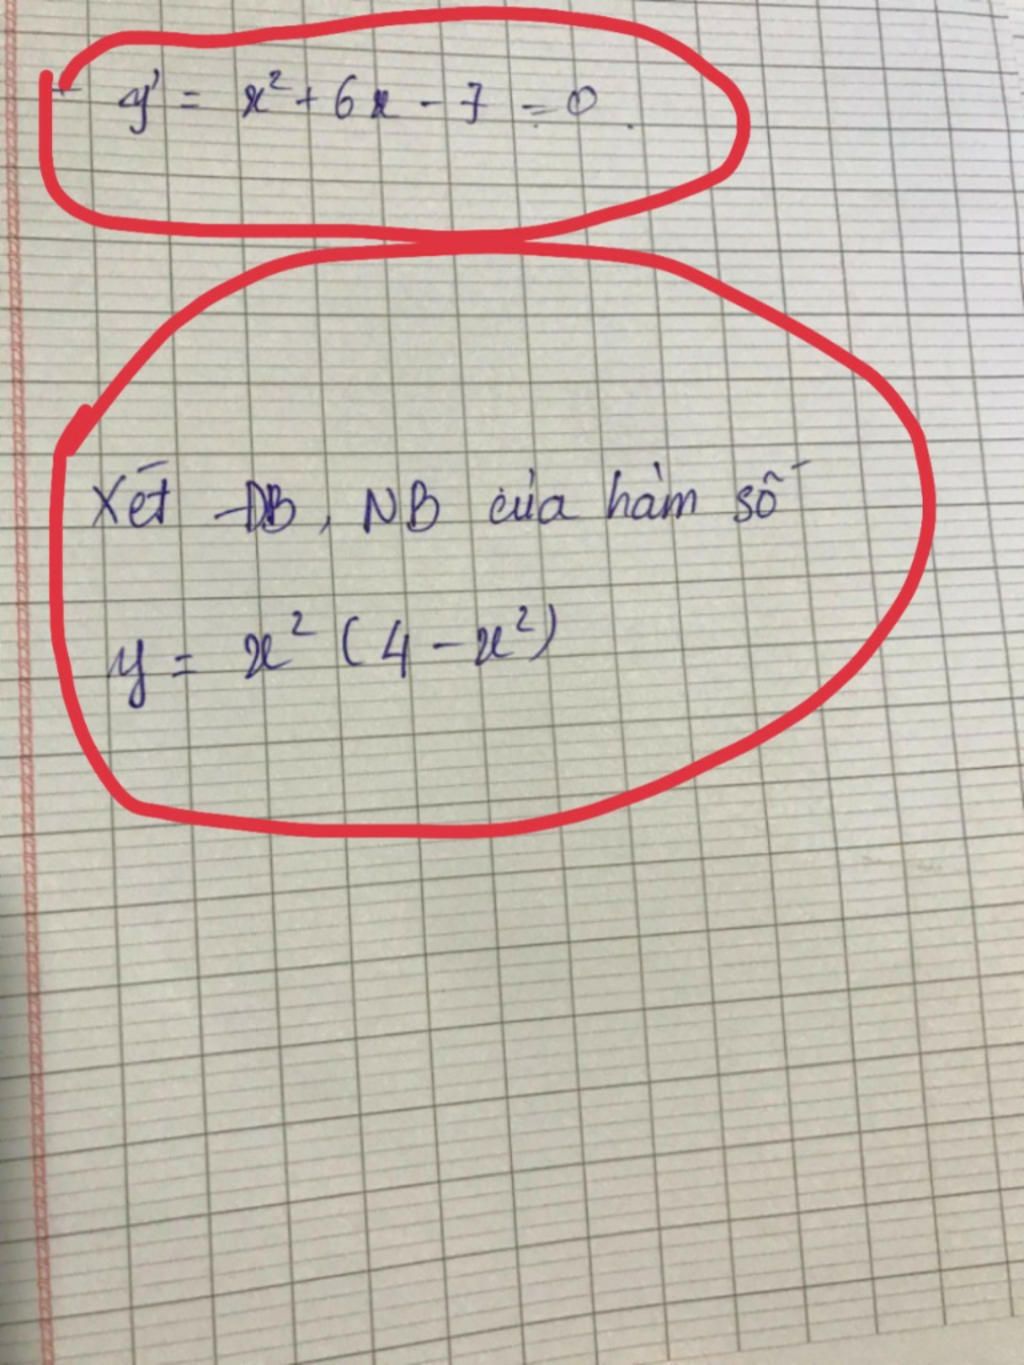 y' = x² + 6x - 7 = 0.
Xét ĐB, NB của hàm số
y = x² (4 - x²)